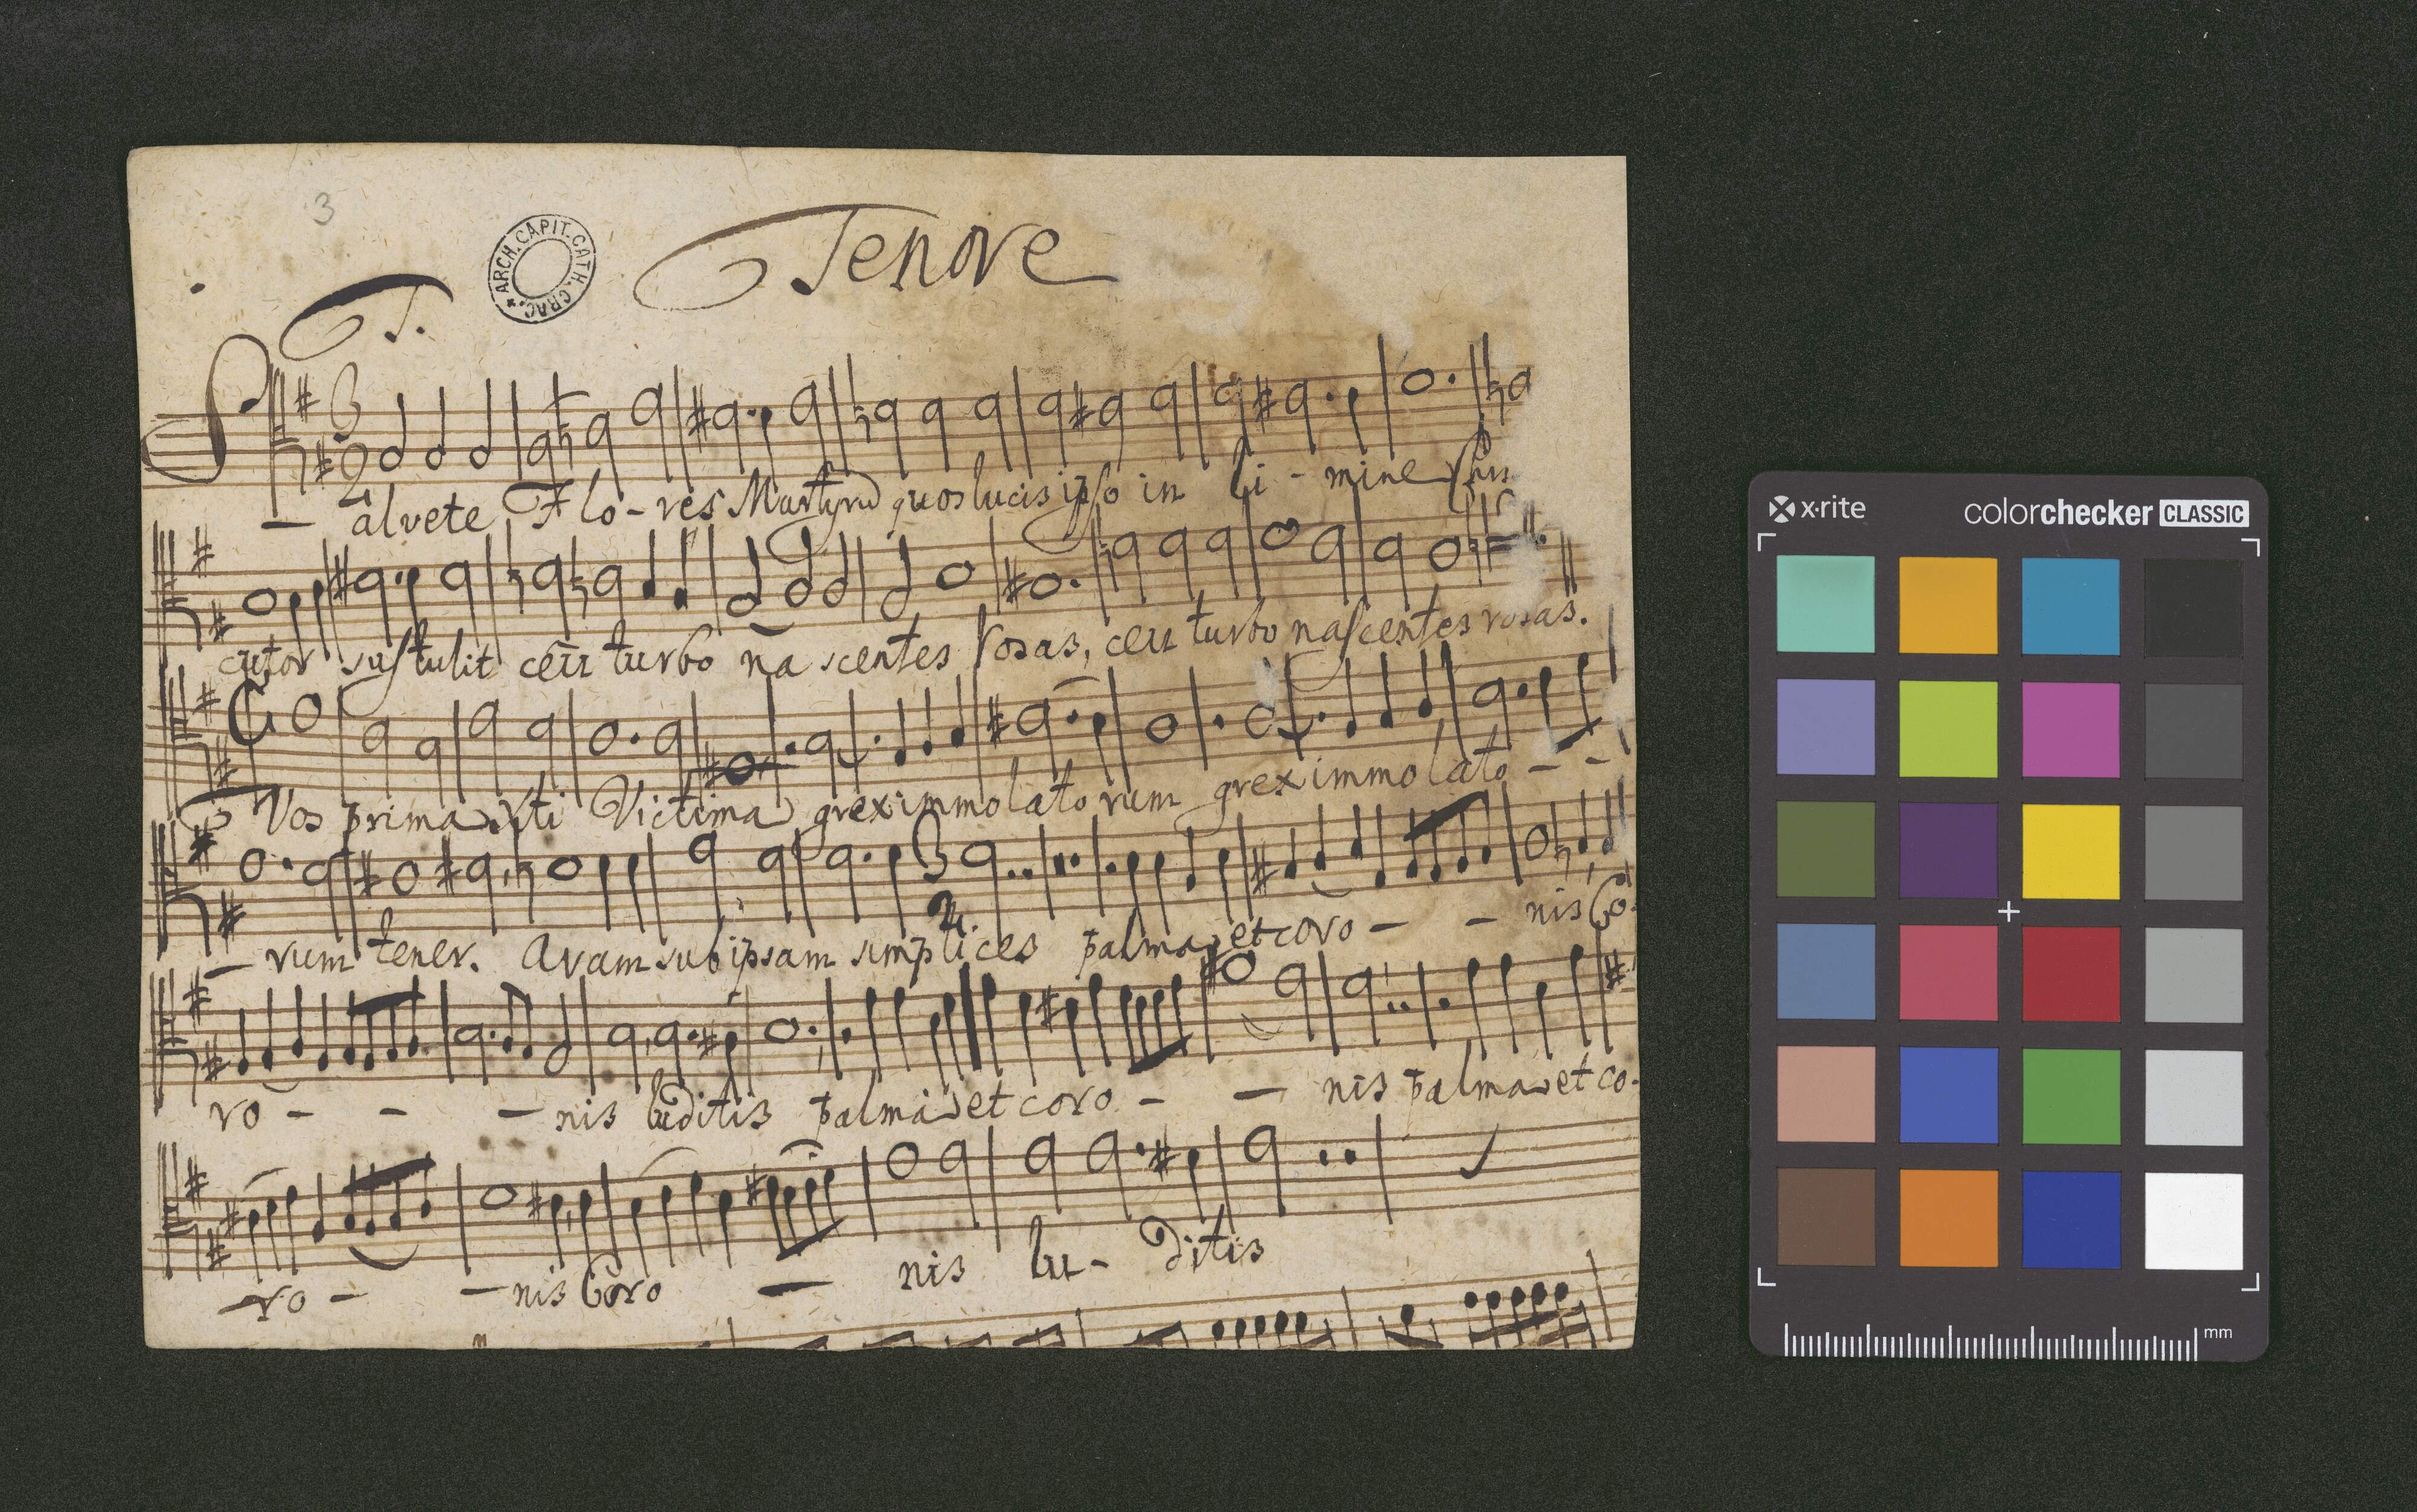 3
Tenore
ARCH. CAPIT. CATH. CRAC.
T.
Salvete Flores Martyrũ quos lucis ipso in li - mine Chri
cutor sustulit ceu turbo na scentes Rosas, ceu turbo nascentes rosas.
Vos prima Xti Victima grex immolato rum grex immolato - -
- rum tener. Aram sub ipsam simplices palma et coro - - nis Co-
ro - - - nis luditis palma et coro - - nis palma et co-
ro - - nis Coro - nis lu - ditis
x-rite
colorchecker CLASSIC
mm